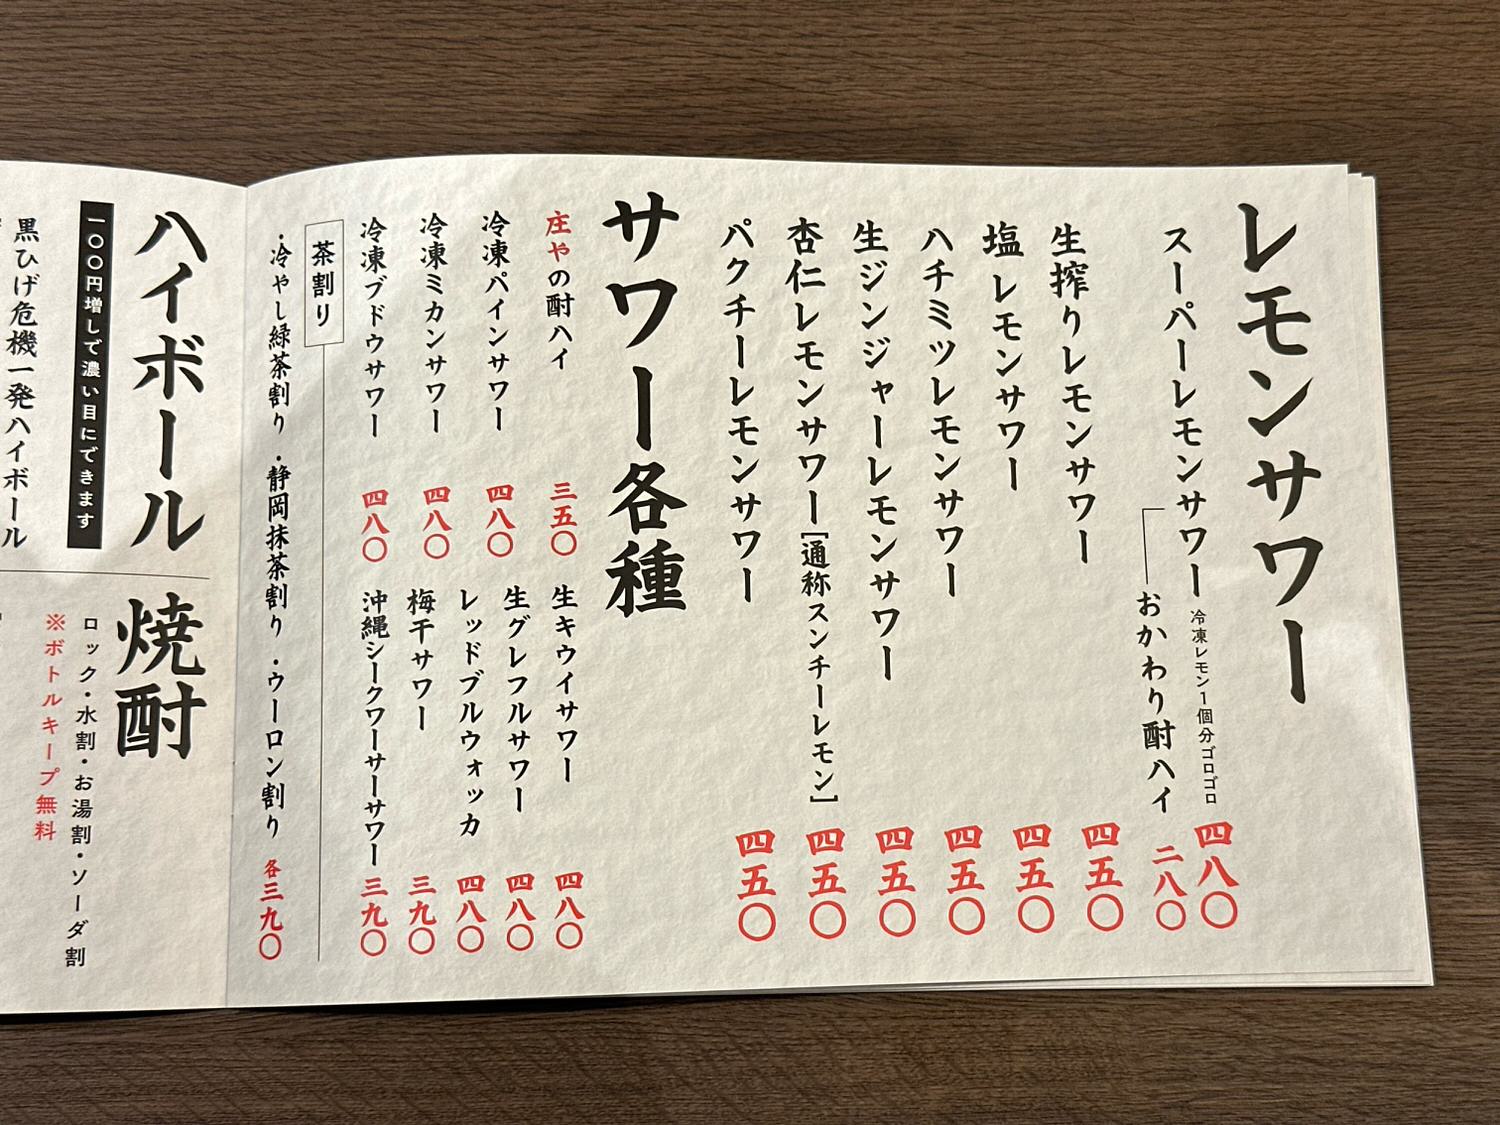 レモンサワー
スーパーレモンサワー 冷凍レモン1個分ゴロゴロ 四八〇
おかわり酎ハイ 二八〇
生搾りレモンサワー 四五〇
塩レモンサワー 四五〇
ハチミツレモンサワー 四五〇
生ジンジャーレモンサワー 四五〇
杏仁レモンサワー[通称スンチーレモン] 四五〇
パクチーレモンサワー 四五〇
サワー各種
庄やの酎ハイ 三五〇
冷凍パインサワー 四八〇
冷凍ミカンサワー 四八〇
冷凍ブドウサワー 四八〇
生キウイサワー 四八〇
生グレフルサワー 四八〇
レッドブルウォッカ 四八〇
梅干サワー 三九〇
沖縄シークワーサーサワー 三九〇
茶割り
・冷やし緑茶割り ・静岡抹茶割り ・ウーロン割り 各三九〇
ハイボール
一〇〇円増しで濃い目にできます
黒ひげ危機一発ハイボール
焼酎
ロック・水割・お湯割・ソーダ割
※ボトルキープ無料